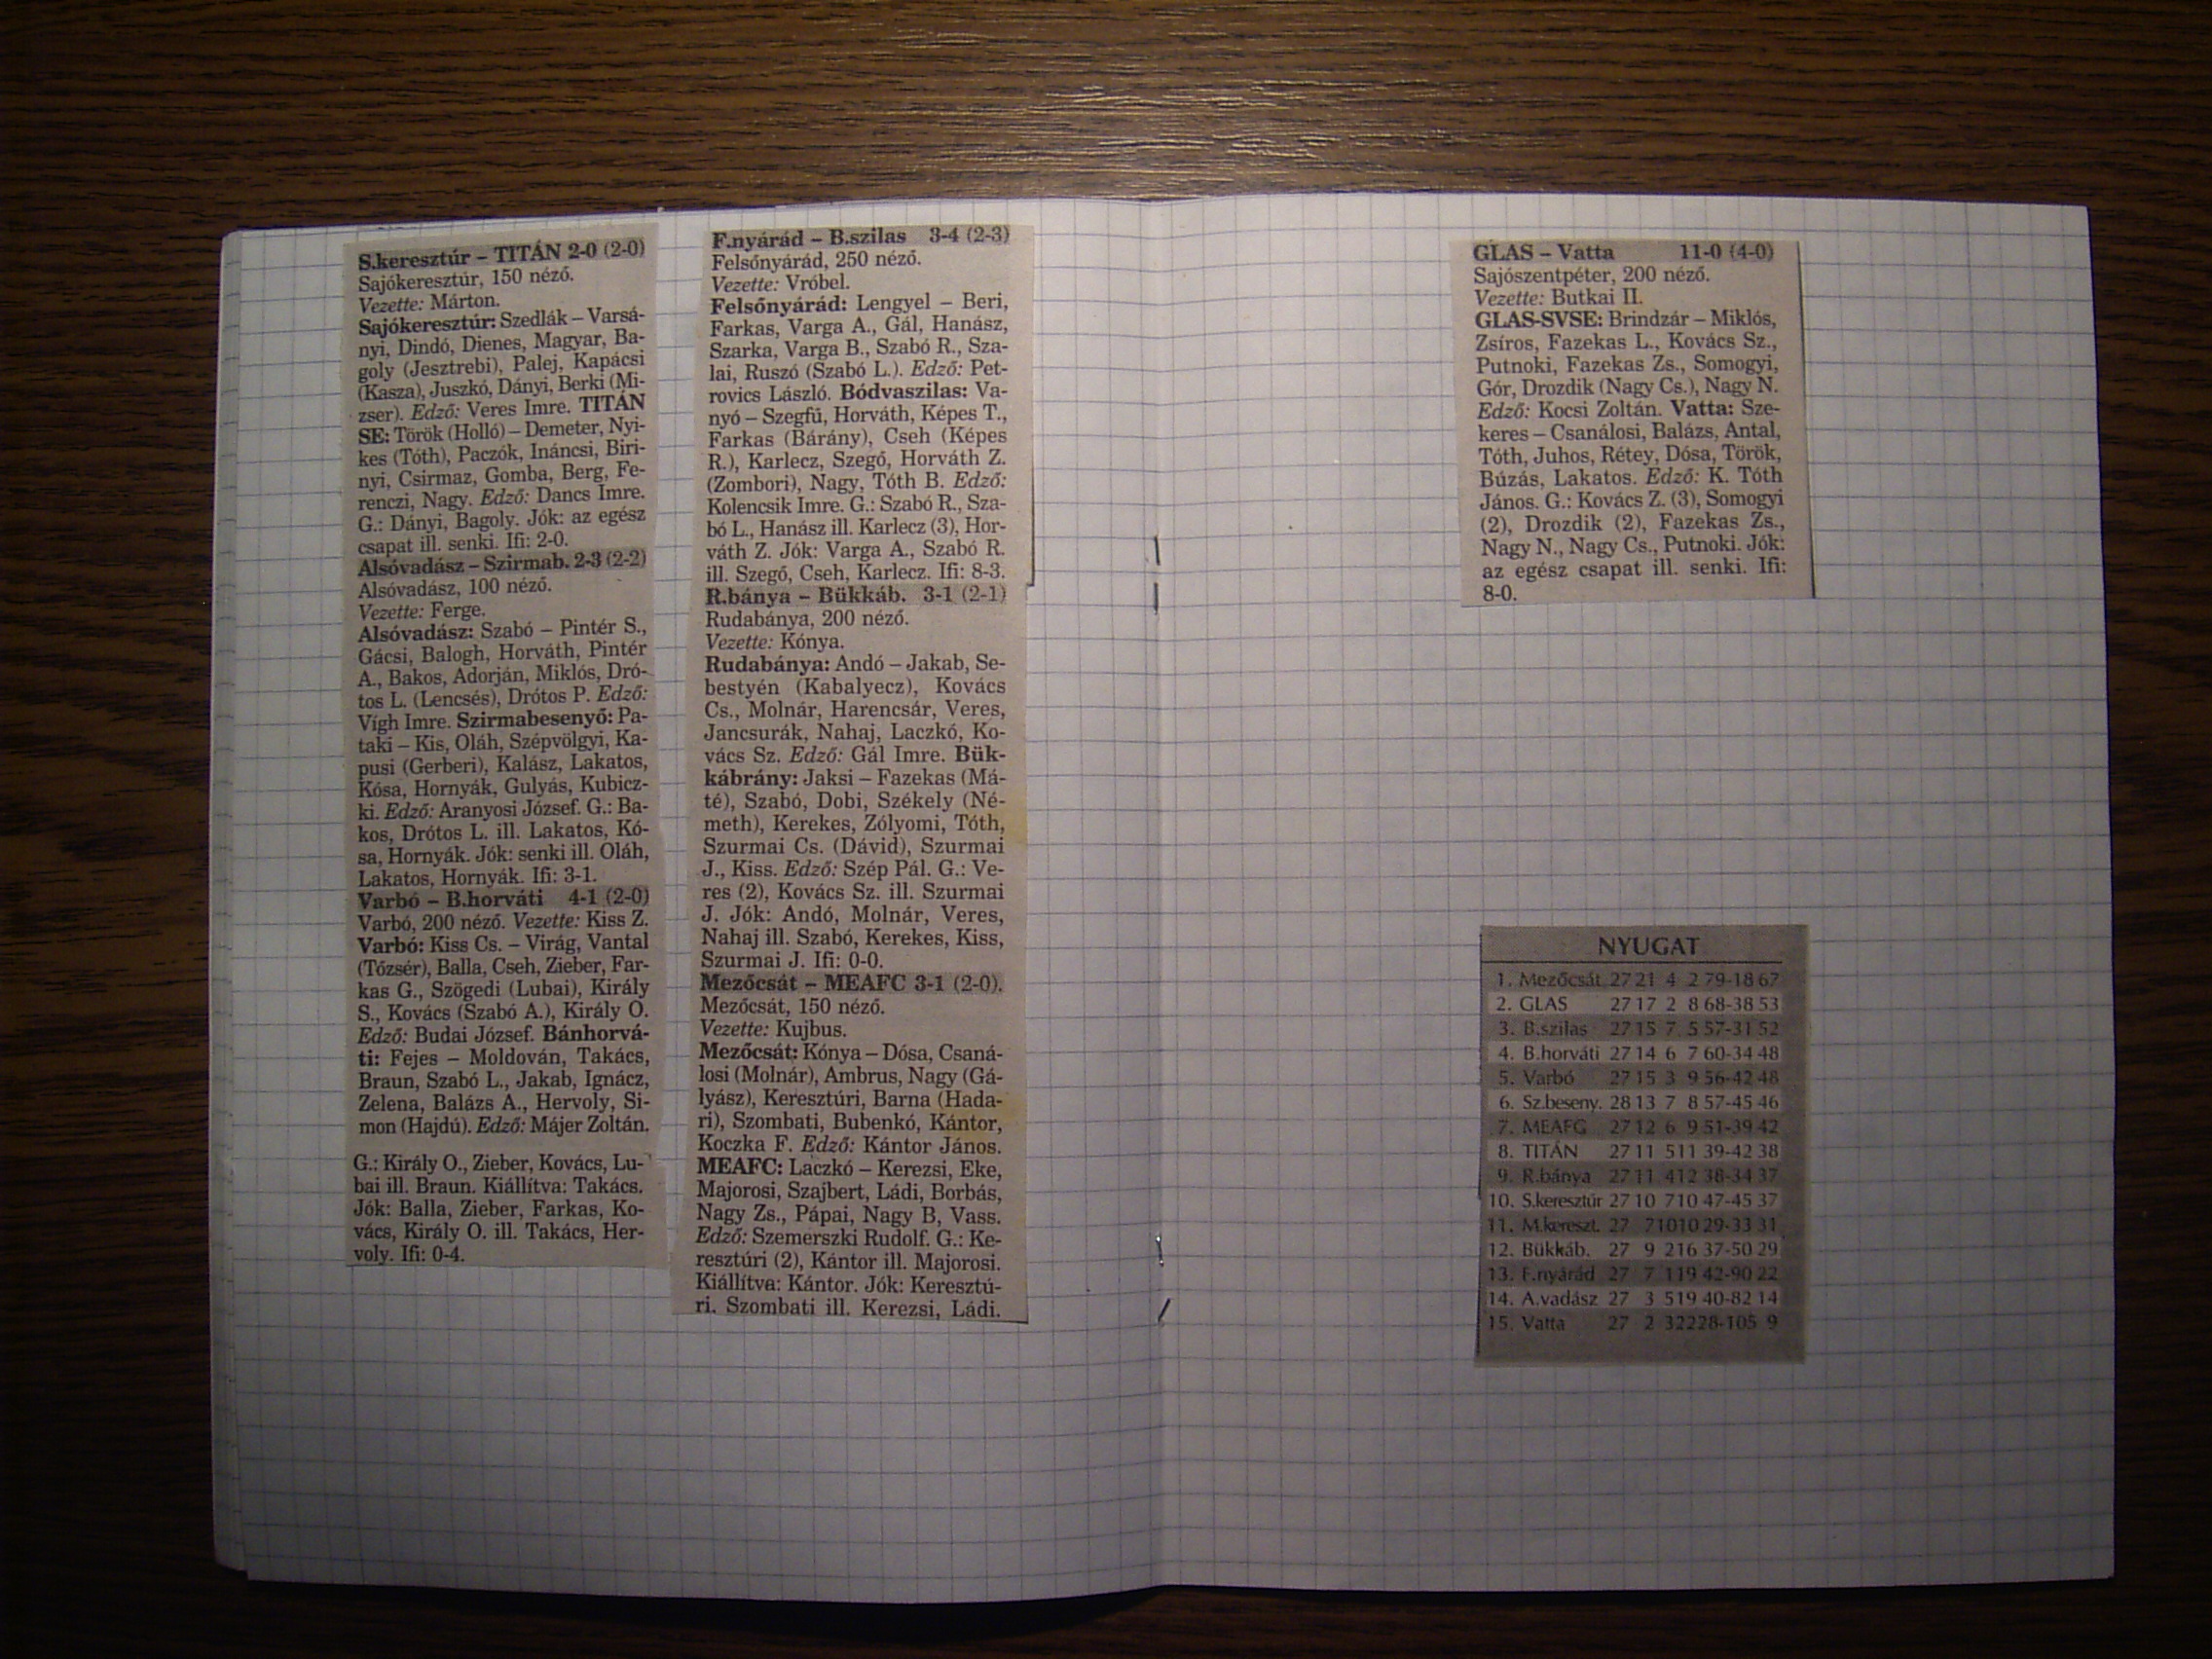 S.keresztúr – TITÁN 2-0 (2-0)
Sajókeresztúr, 150 néző.
Vezette: Márton.
Sajókeresztúr: Szedlák – Varsá-
nyi, Dindó, Dienes, Magyar, Ba-
goly (Jesztrebi), Palej, Kapácsi
(Kasza), Juszkó, Dányi, Berki (Mi-
zser). Edző: Veres Imre. TITÁN
SE: Török (Holló) – Demeter, Nyi-
kes (Tóth), Paczók, Ináncsi, Biri-
nyi, Csirmaz, Gomba, Berg, Fe-
renczi, Nagy. Edző: Dancs Imre.
G.: Dányi, Bagoly. Jók: az egész
csapat ill. senki. Ifi: 2-0.
Alsóvadász – Szirmab. 2-3 (2-2)
Alsóvadász, 100 néző.
Vezette: Ferge.
Alsóvadász: Szabó – Pintér S.,
Gácsi, Balogh, Horváth, Pintér
A., Bakos, Adorján, Miklós, Dró-
tos L. (Lencsés), Drótos P. Edző:
Vígh Imre. Szirmabesenyő: Pa-
taki – Kis, Oláh, Szépvölgyi, Ka-
pusi (Gerberi), Kalász, Lakatos,
Kósa, Hornyák, Gulyás, Kubicz-
ki. Edző: Aranyosi József. G.: Ba-
kos, Drótos L. ill. Lakatos, Kó-
sa, Hornyák. Jók: senki ill. Oláh,
Lakatos, Hornyák. Ifi: 3-1.
Varbó – B.horváti 4-1 (2-0)
Varbó, 200 néző. Vezette: Kiss Z.
Varbó: Kiss Cs. – Virág, Vantal
(Tőzsér), Balla, Cseh, Zieber, Far-
kas G., Szögedi (Lubai), Király
S., Kovács (Szabó A.), Király O.
Edző: Budai József. Bánhorvá-
ti: Fejes – Moldován, Takács,
Braun, Szabó L., Jakab, Ignácz,
Zelena, Balázs A., Hervoly, Si-
mon (Hajdú). Edző: Májer Zoltán.
G.: Király O., Zieber, Kovács, Lu-
bai ill. Braun. Kiállítva: Takács.
Jók: Balla, Zieber, Farkas, Ko-
vács, Király O. ill. Takács, Her-
voly. Ifi: 0-4.
F.nyárád – B.szilas 3-4 (2-3)
Felsőnyárád, 250 néző.
Vezette: Vróbel.
Felsőnyárád: Lengyel – Beri,
Farkas, Varga A., Gál, Hanász,
Szarka, Varga B., Szabó R., Sza-
lai, Ruszó (Szabó L.). Edző: Pet-
rovics László. Bódvaszilas: Va-
nyó – Szegfű, Horváth, Képes T.,
Farkas (Bárány), Cseh (Képes
R.), Karlecz, Szegő, Horváth Z.
(Zombori), Nagy, Tóth B. Edző:
Kolencsik Imre. G.: Szabó R., Sza-
bó L., Hanász ill. Karlecz (3), Hor-
váth Z. Jók: Varga A., Szabó R.
ill. Szegő, Cseh, Karlecz. Ifi: 8-3.
R.bánya – Bükkáb. 3-1 (2-1)
Rudabánya, 200 néző.
Vezette: Kónya.
Rudabánya: Andó – Jakab, Se-
bestyén (Kabalyecz), Kovács
Cs., Molnár, Harencsár, Veres,
Jancsurák, Nahaj, Laczkó, Ko-
vács Sz. Edző: Gál Imre. Bük-
kábrány: Jaksi – Fazekas (Má-
té), Szabó, Dobi, Székely (Né-
meth), Kerekes, Zólyomi, Tóth,
Szurmai Cs. (Dávid), Szurmai
J., Kiss. Edző: Szép Pál. G.: Ve-
res (2), Kovács Sz. ill. Szurmai
J. Jók: Andó, Molnár, Veres,
Nahaj ill. Szabó, Kerekes, Kiss,
Szurmai J. Ifi: 0-0.
Mezőcsát – MEAFC 3-1 (2-0).
Mezőcsát, 150 néző.
Vezette: Kujbus.
Mezőcsát: Kónya – Dósa, Csaná-
losi (Molnár), Ambrus, Nagy (Gá-
lyász), Keresztúri, Barna (Hada-
ri), Szombati, Bubenkó, Kántor,
Koczka F. Edző: Kántor János.
MEAFC: Laczkó – Kerezsi, Eke,
Majorosi, Szajbert, Ládi, Borbás,
Nagy Zs., Pápai, Nagy B, Vass.
Edző: Szemerszki Rudolf. G.: Ke-
resztúri (2), Kántor ill. Majorosi.
Kiállítva: Kántor. Jók: Keresztú-
ri. Szombati ill. Kerezsi, Ládi.
GLAS – Vatta 11-0 (4-0)
Sajószentpéter, 200 néző.
Vezette: Butkai II.
GLAS-SVSE: Brindzár – Miklós,
Zsíros, Fazekas L., Kovács Sz.,
Putnoki, Fazekas Zs., Somogyi,
Gór, Drozdik (Nagy Cs.), Nagy N.
Edző: Kocsi Zoltán. Vatta: Sze-
keres – Csanálosi, Balázs, Antal,
Tóth, Juhos, Rétey, Dósa, Török,
Búzás, Lakatos. Edző: K. Tóth
János. G.: Kovács Z. (3), Somogyi
(2), Drozdik (2), Fazekas Zs.,
Nagy N., Nagy Cs., Putnoki. Jók:
az egész csapat ill. senki. Ifi:
8-0.
NYUGAT
1. Mezőcsát 27 21 4 2 79-18 67
2. GLAS 27 17 2 8 68-38 53
3. B.szilas 27 15 7 5 57-31 52
4. B.horváti 27 14 6 7 60-34 48
5. Varbó 27 15 3 9 56-42 48
6. Sz.beseny. 28 13 7 8 57-45 46
7. MEAFC 27 12 6 9 51-39 42
8. TITÁN 27 11 5 11 39-42 38
9. R.bánya 27 11 4 12 38-34 37
10. S.keresztúr 27 10 7 10 47-45 37
11. M.kereszt. 27 7 10 10 29-33 31
12. Bükkáb. 27 9 2 16 37-50 29
13. F.nyárád 27 7 1 19 42-90 22
14. A.vadász 27 3 5 19 40-82 14
15. Vatta 27 2 3 22 28-105 9